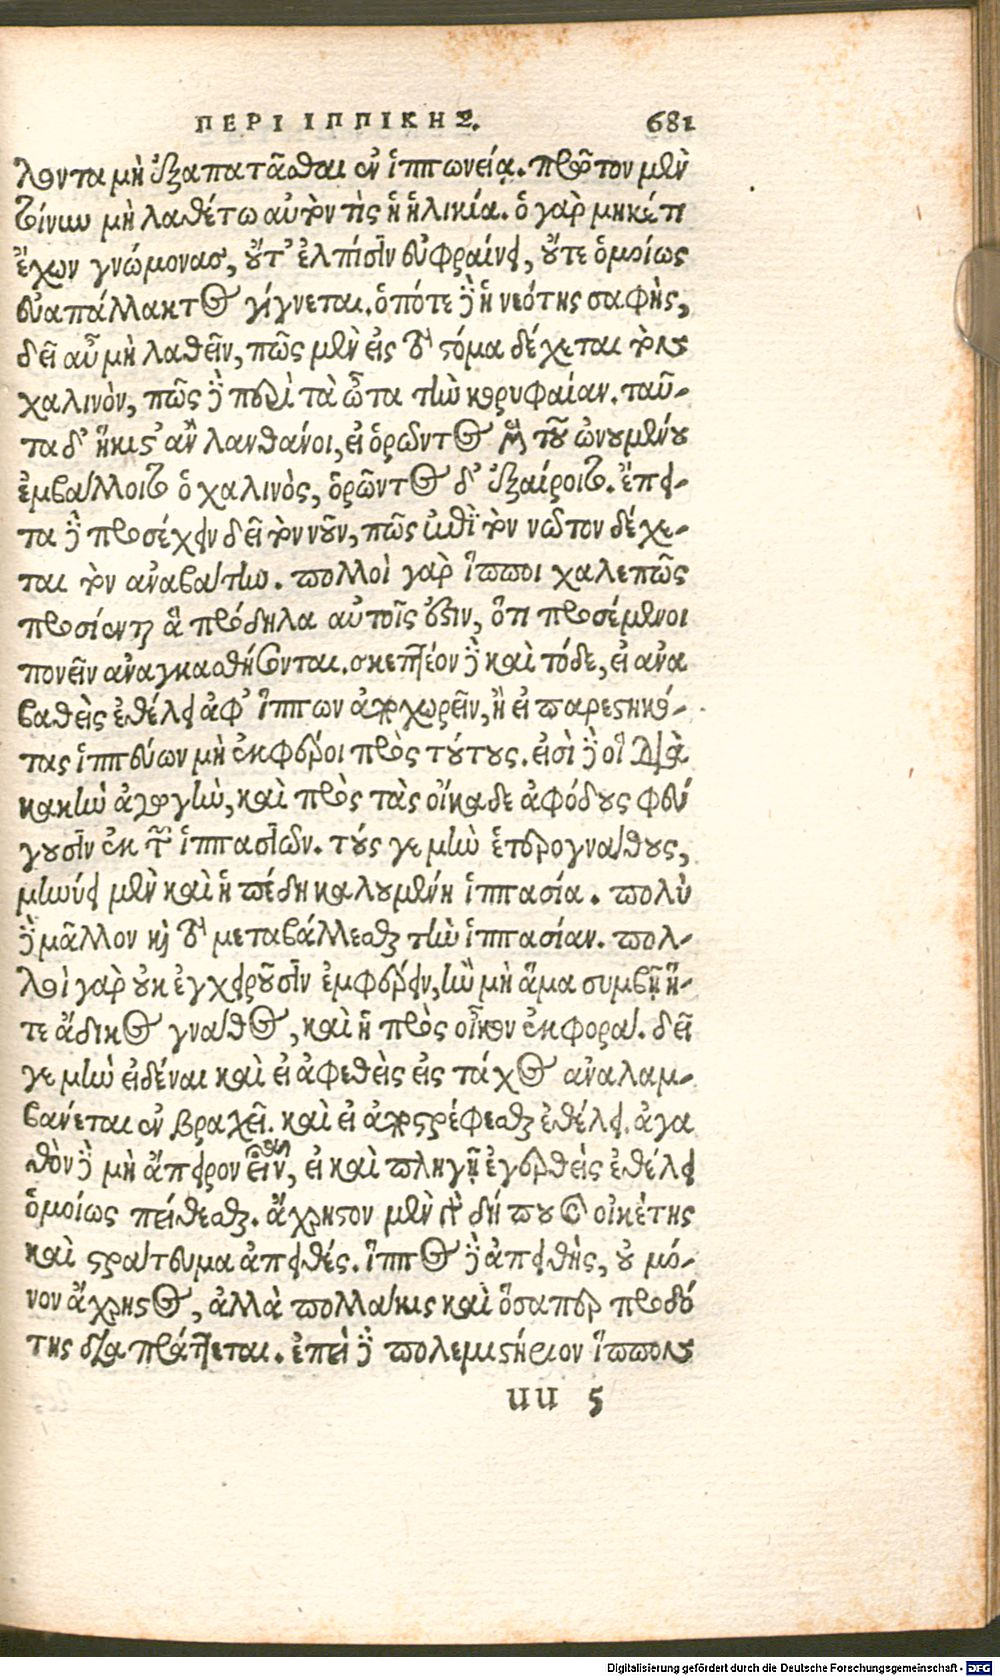 ΠΕΡΙ ΙΠΠΙΚΗΣ. 681
λοντα μὴ ἐξαπατᾶσθαι ἐν ἱππωνείᾳ. πρῶτον μὲν
τοίνυν μὴ λαθέτω αὐτὸν τὶς ἡ ἡλικία. ὁ γὰρ μηκέτι
ἔχων γνώμονας, οὔτ' ἐλπίσιν εὐφραίνει, οὔτε ὁμοίως
εὐαπάλλακτος γίγνεται. ὁπότε δὲ ἡ νεότης σαφὴς,
δεῖ αὖ μὴ λαθεῖν, πῶς μὲν εἰς τὸ στόμα δέχεται τὸν
χαλινὸν, πῶς δὲ περὶ τὰ ὦτα τὴν κορυφαίαν. ταῦ-
τα δ' ἥκιστ' ἂν λανθάνοι, εἰ ὁρῶντος μὲν τοῦ ὠνουμένου
ἐμβάλλοιτο ὁ χαλινὸς, ὁρῶντος δ' ἐξαίροιτο. ἔπει-
τα δὲ προσέχειν δεῖ τὸν νοῦν, πῶς ἐπὶ τὸν νῶτον δέχε-
ται τὸν ἀναβάτην. πολλοὶ γὰρ ἵπποι χαλεπῶς
προσίενται ἃ πρόδηλα αὐτοῖς ἐστιν, ὅτι προσέμενοι
πονεῖν ἀναγκασθήσονται. σκεπτέον δὲ καὶ τόδε, εἰ ἀνα
βαθεὶς ἐθέλει ἀφ' ἵππων ἀποχωρεῖν, ἢ εἰ παρεστηκό-
τας ἱππεύων μὴ ἐκφέροι πρὸς τούτους. εἰσὶ δὲ οἳ διὰ
κακὴν ἀγωγὴν, καὶ πρὸς τὰς οἴκαδε ἀφόδους φεύ
γουσιν ἐκ τῶν ἱππασιῶν. τούς γε μὴν ἑτερογνάθους,
μηνύει μὲν καὶ ἡ πέδη καλουμένη ἱππασία. πολὺ
δὲ μᾶλλον καὶ τὸ μεταβάλλεσθαι τὴν ἱππασίαν. πολ-
λοὶ γὰρ οὐκ ἐγχειροῦσιν ἐμφέρειν, ἢν μὴ ἅμα συμβῇ ἥ-
τε ἄδικος γνάθος, καὶ ἡ πρὸς οἶκον ἐκφορά. δεῖ
γε μὴν εἰδέναι καὶ εἰ ἀφεθεὶς εἰς τάχος ἀναλαμ-
βάνεται ἐν βραχεῖ. καὶ εἰ ἀποστρέφεσθαι ἐθέλει. ἀγα
θὸν δὲ μὴ ἄπειρον εἶναι, εἰ καὶ πληγῇ ἐγερθεὶς ἐθέλει
ὁμοίως πείθεσθαι. ἄχρηστον μὲν γὰρ δή που καὶ οἰκέτης
καὶ στράτευμα ἀπειθές. ἵππος δὲ ἀπειθὴς, οὐ μό-
νον ἄχρηστος, ἀλλὰ πολλάκις καὶ ὅσαπερ προδό
της διαπράττεται. ἐπεὶ δὲ πολεμιστήριον ἵππον
uu 5
Digitalisierung gefördert durch die Deutsche Forschungsgemeinschaft - DFG